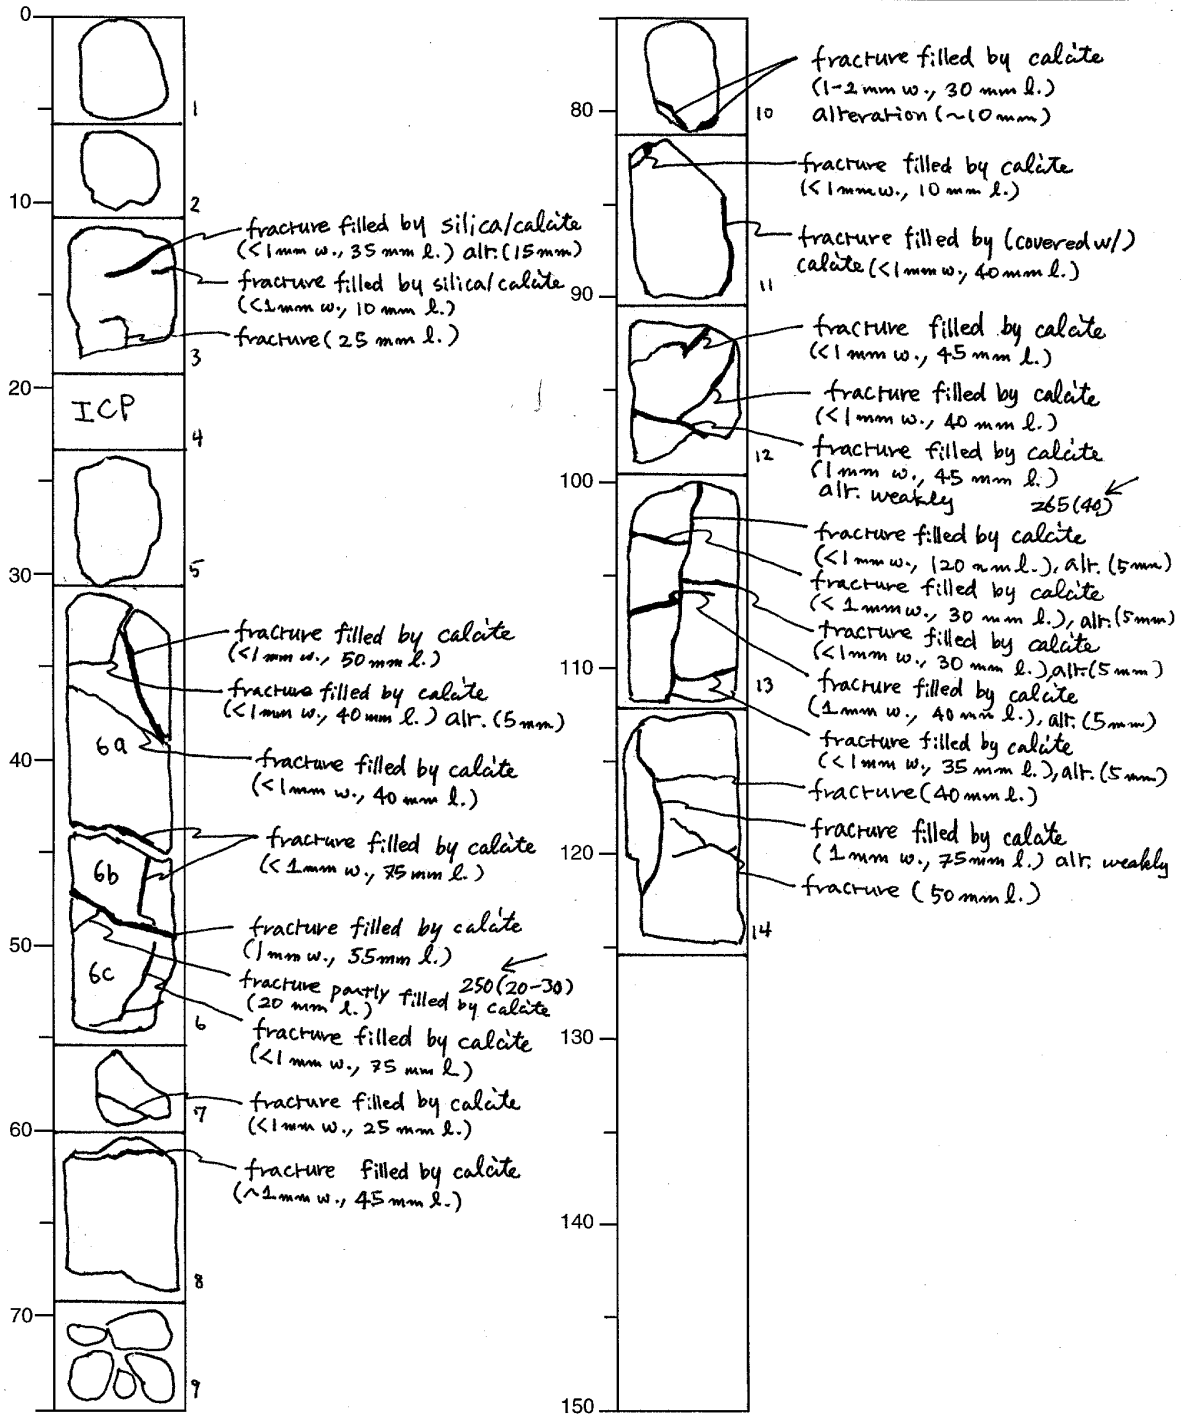 0
1
2
10
fracture filled by silica/calcite
(<1mm w., 35 mm l.) alt. (15mm)
fracture filled by silica/calcite
(<1mm w., 10 mm l.)
fracture (25 mm l.)
3
20
ICP
4
5
30
fracture filled by calcite
(<1mm w., 50mm l.)
fracture filled by calcite
(<1mm w., 40mm l.) alt. (5mm)
6a
40
fracture filled by calcite
(<1mm w., 40 mm l.)
fracture filled by calcite
(<1mm w., 75 mm l.)
6b
fracture filled by calcite
(1mm w., 55mm l.)
50
6c
250(20-30)
fracture partly filled by calcite
(20 mm l.)
6
fracture filled by calcite
(<1mm w., 75 mm l.)
7
fracture filled by calcite
(<1mm w., 25 mm l.)
60
fracture filled by calcite
(~1mm w., 45mm l.)
8
70
9
fracture filled by calcite
(1-2mm w., 30 mm l.)
alteration (~10mm)
80
10
fracture filled by calcite
(<1mm w., 10 mm l.)
fracture filled by (covered w/)
calcite (<1mm w., 40mm l.)
11
90
fracture filled by calcite
(<1mm w., 45 mm l.)
fracture filled by calcite
(<1mm w., 40 mm l.)
12
fracture filled by calcite
(1mm w., 45 mm l.)
alt. weakly
265(40)
100
fracture filled by calcite
(<1mm w., 120 mm l.), alt. (5mm)
fracture filled by calcite
(<1mm w., 30 mm l.), alt. (5mm)
fracture filled by calcite
(<1mm w., 30 mm l.), alt. (5mm)
110
13
fracture filled by calcite
(1mm w., 40mm l.), alt. (5mm)
fracture filled by calcite
(<1mm w., 35 mm l.), alt. (5mm)
fracture (40mm l.)
fracture filled by calcite
(1mm w., 75mm l.) alt. weakly
120
fracture (50mm l.)
14
130
140
150